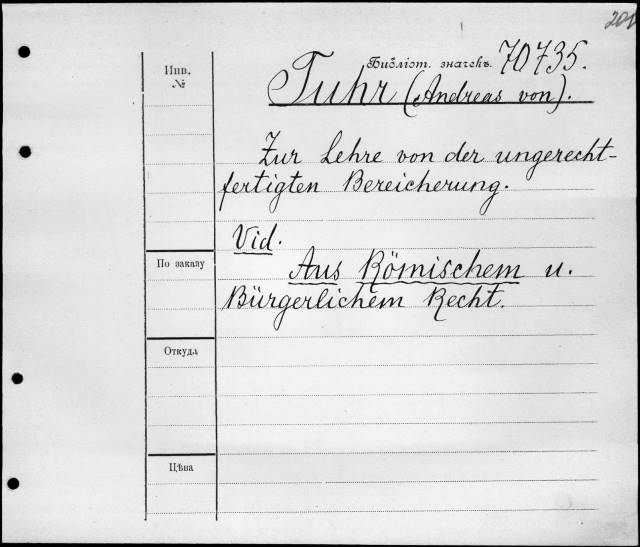 201
Инв.
№
Библіот. значекъ. 70735.
Tuhr (Andreas von).
Zur Lehre von der ungerecht-
fertigten Bereicherung.
Vid.
По заказу
Aus Römischem u.
Bürgerlichem Recht.
Откуда
Цѣна